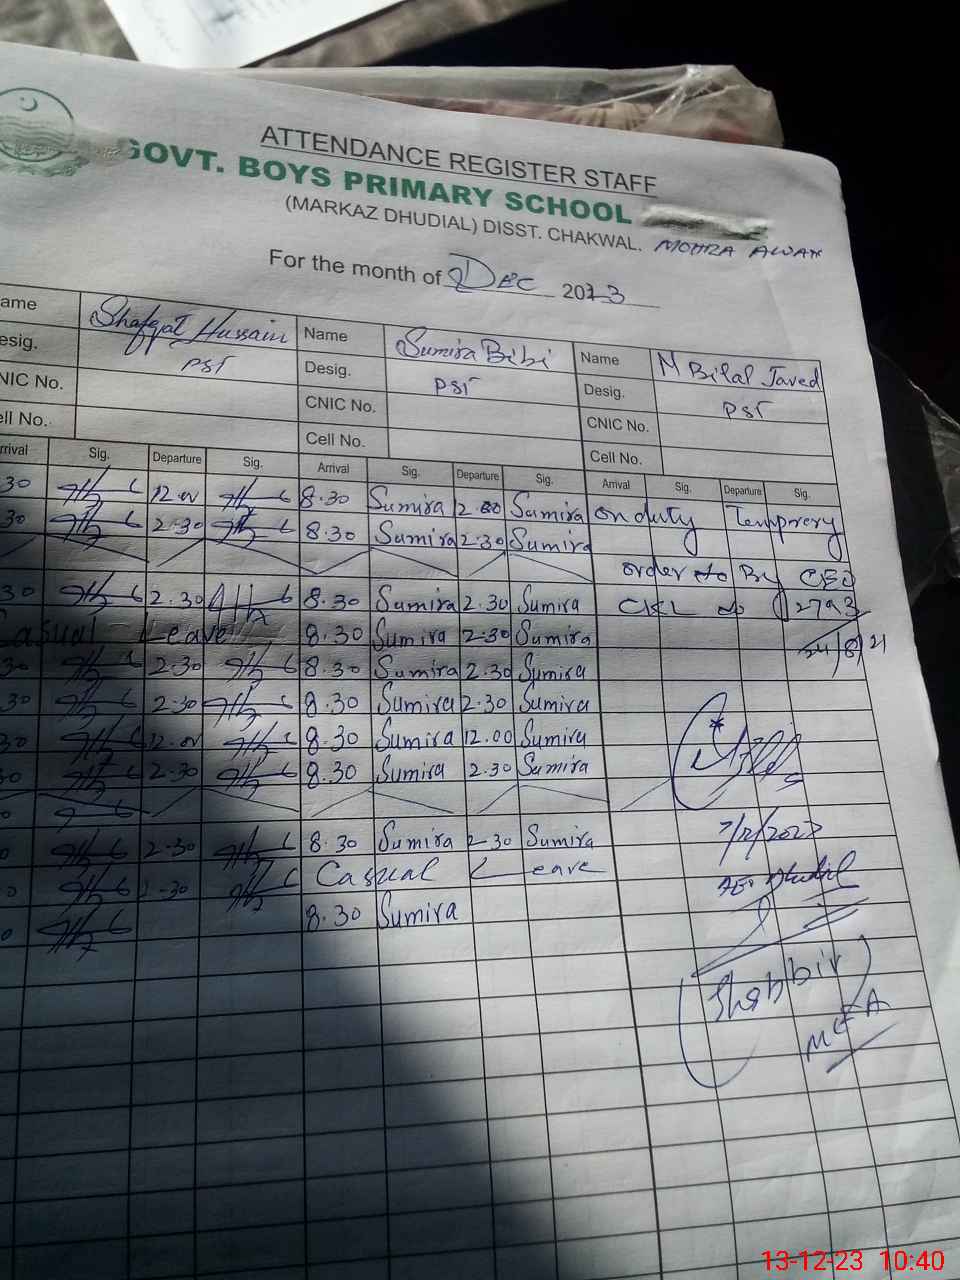 ATTENDANCE REGISTER STAFF
GOVT. BOYS PRIMARY SCHOOL
(MARKAZ DHUDIAL) DISST. CHAKWAL. MOHRA AWAN
For the month of Dec 2023
ame Shafqat Hussain Name Sumira Bibi Name M Bilal Javed
esig. PST Desig. PST Desig. PST
NIC No. CNIC No. CNIC No.
ell No. Cell No. Cell No.
rrival Sig. Departure Sig. Arrival Sig. Departure Sig. Arrival Sig. Departure Sig.
30 12.00 8.30 Sumira 2.30 Sumira on duty Temprery
30 2.30 8.30 Sumira 2.30 Sumira
order to By CEO
30 2.30 8.30 Sumira 2.30 Sumira CKL 2793
Casual Leave 8.30 Sumira 2.30 Sumira 24/8/21
30 2.30 8.30 Sumira 2.30 Sumira
30 2.30 8.30 Sumira 2.30 Sumira
30 12.00 8.30 Sumira 12.00 Sumira
30 2.30 8.30 Sumira 2.30 Sumira
0 2.30 8.30 Sumira 2.30 Sumira 7/12/2023
0 2.30 Casual Leave AEO Dhudial
0 8.30 Sumira
Shabbir
MEA
13-12-23 10:40